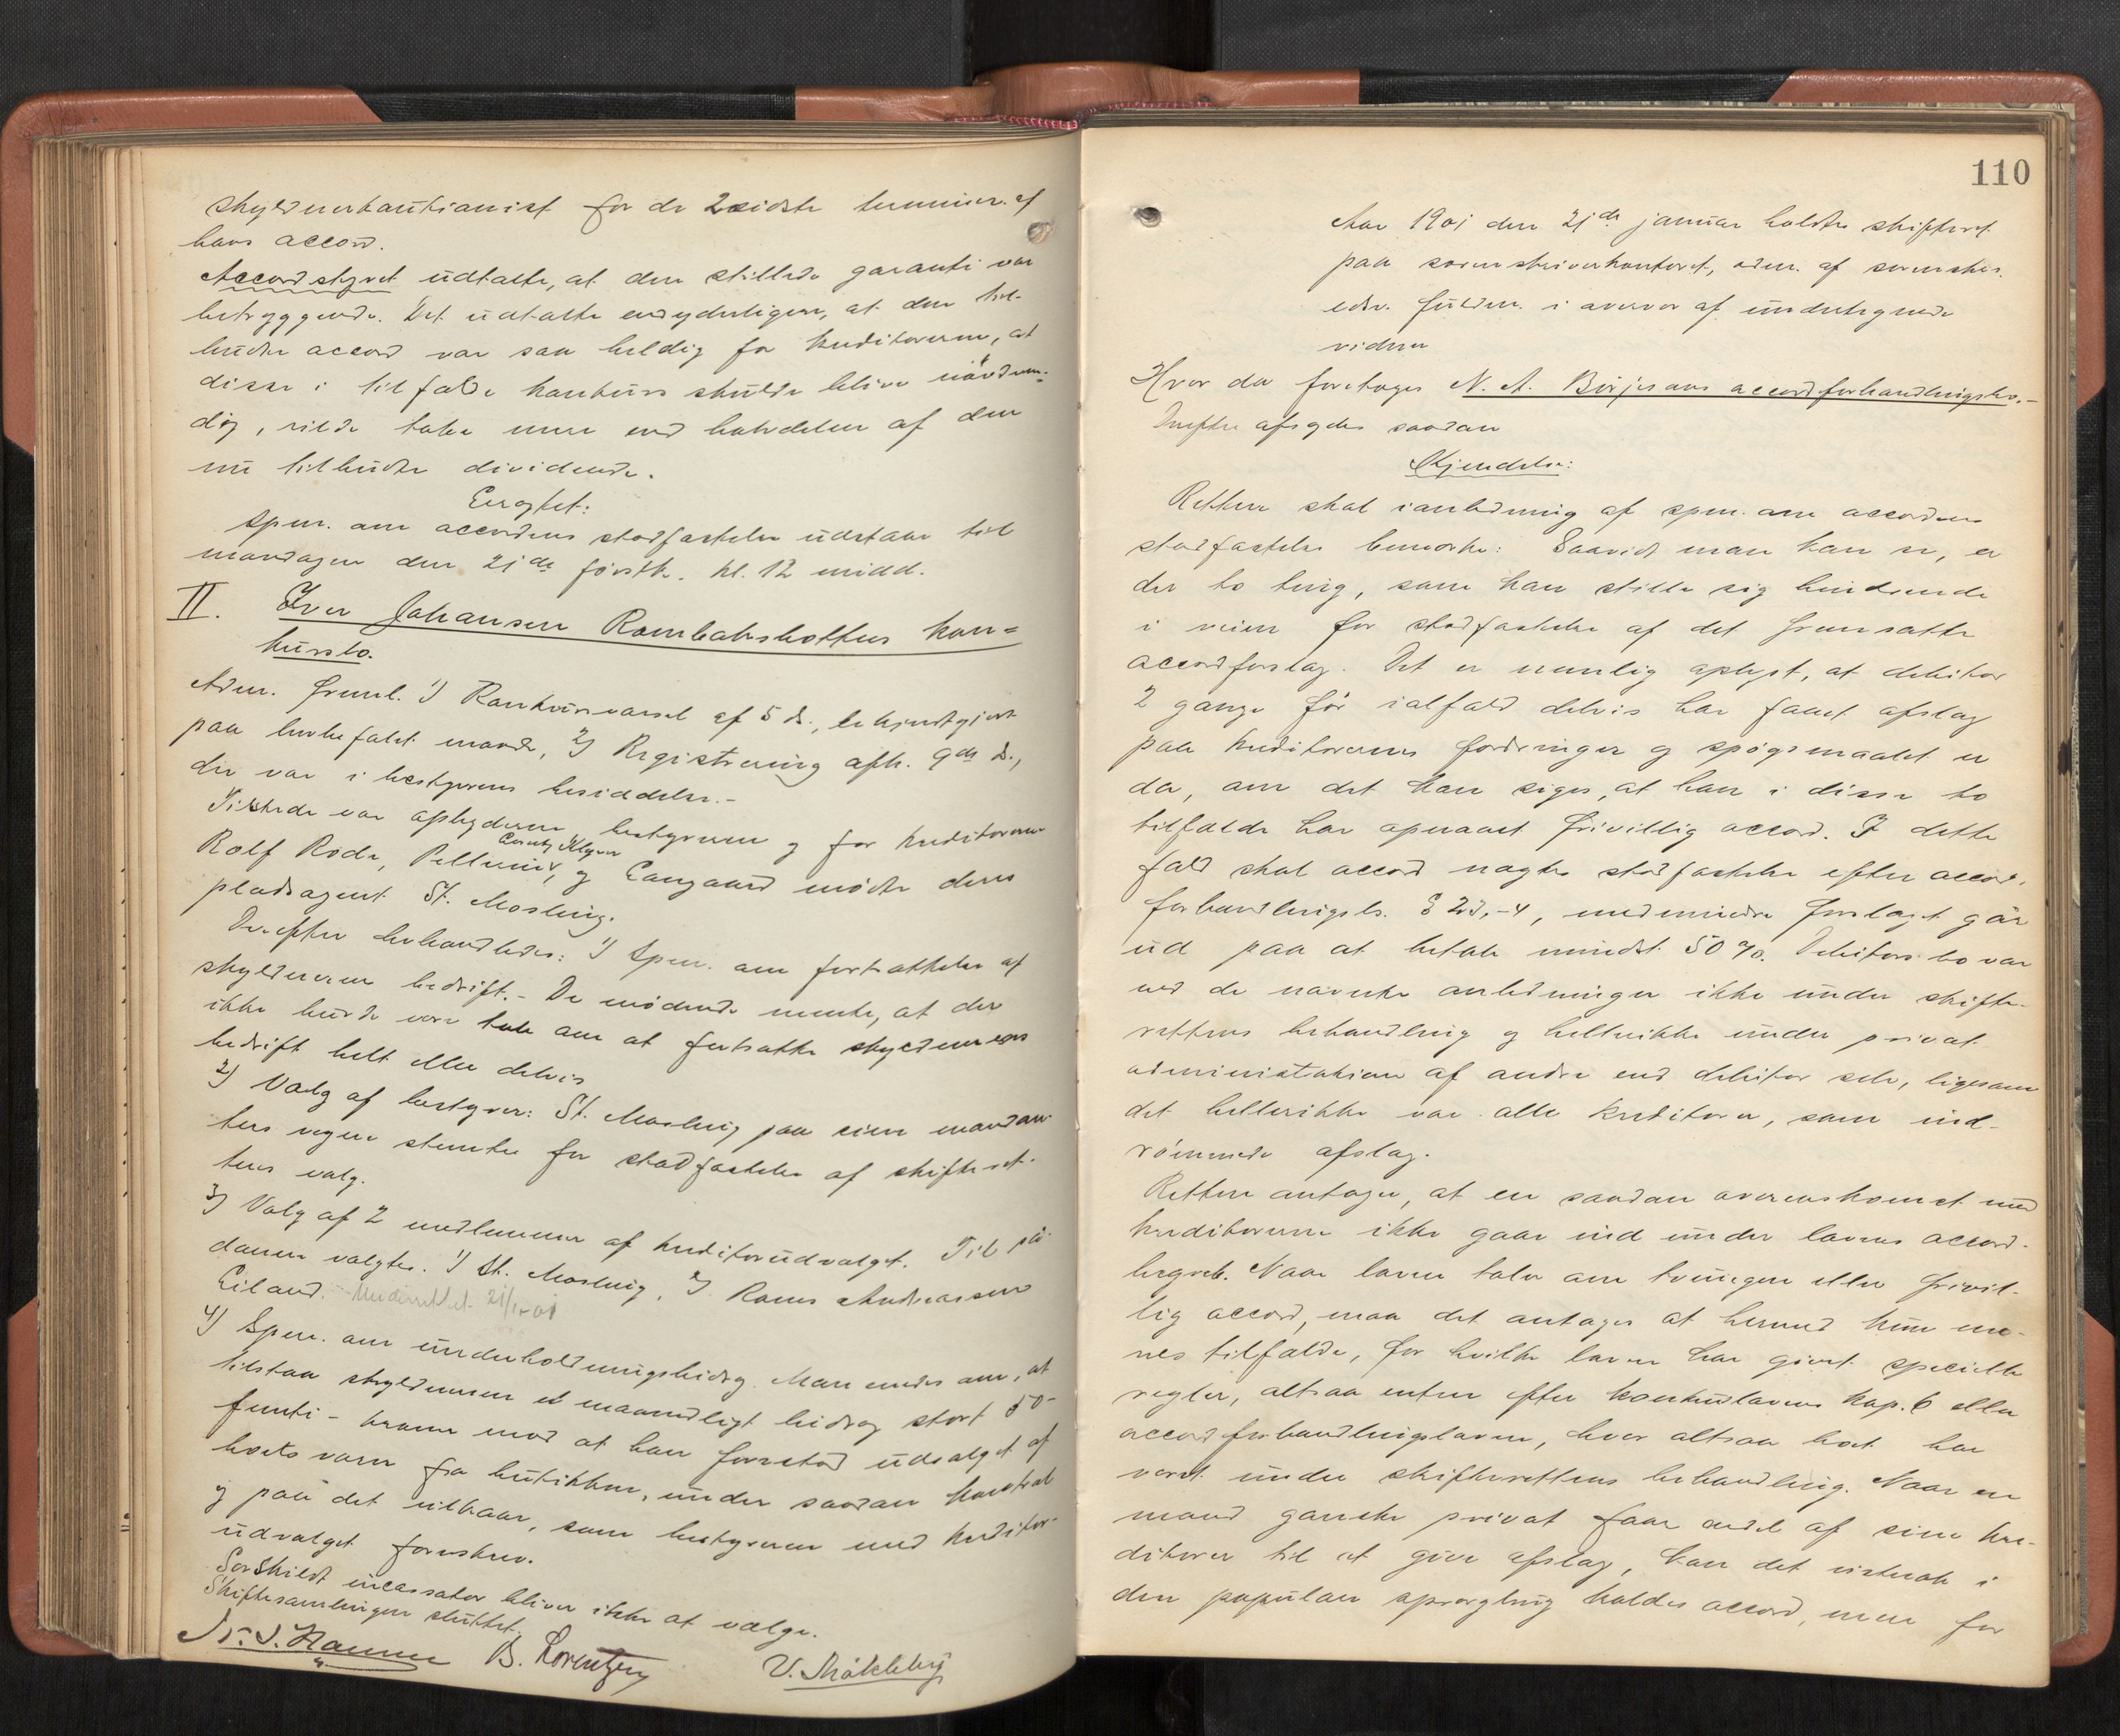 skyldnerkautionist for de 2 sidste terminer af
hans accord.
Accordstyret udtalte, at den stillede garanti var
betryggende. Det udtalte endyderligere, at den til-
budte accord var saa heldig for kreditorerne, at
disse i tilfælde konkurs skulde blive nødven-
dig, vilde tabe mere end halvdelen af den
nu tilbudte dividende.
Eragtet:
Spm. om accordens stadfæstelse udstaar til
mandagen den 21de førstk. kl. 12 midd.
II. Iver Johansen Rombaksbottens kon-
kursbo.
Adm. freml. 1) Konkursvarsel af 5 ds., bekjendtgjort
paa lovbefalet maade, 2) Registrering afh. 9de ds.,
der var i bestyrerens besiddelse.-
Tilstede var opbyderen, bestyreren og for kreditorerne
Rolf Rode, Pellerin, Conrtz Klyver og Langaard mødte deres
pladsagent St. Mosling.
Derefter behandledes: 1) Spm. om fortsættelse af
skyldnerens bedrift.- De mødende mente, at der
ikke burde være tale om at fortsætte skyldnerens
bedrift helt eller delvis
2) Valg af bestyrer: St. Mosling paa sine mandan-
ters vegne stemte for stadfæstelse af skifteret-
tens valg.
3) Valg af 2 medlemmer af kreditorudvalget. Til så-
danne valgtes. 1) St. Mosling, 2) Rasmus Andreassen
Eiland. Underrettet 21/1-01
4) Spm. om underholdningsbidrag. Man enedes om, at
tilstaa skyldneren et maanedligt bidrag stort 50-
femti- kroner mod at han forestod udsalget af
boets varer fra butikken, under saadan kontrol
og paa det vilkaar, som bestyreren med kreditor-
udvalget foreskrev.
Særskildt incassator bliver ikke at vælge.
Skiftesamlingen sluttet.
B. Lorentzen V. Møkleby
110
Aar 1901 den 21de januar holdtes skifteret
paa sorenskriverkontoret, adm. af sorenskr.
edsv. fuldm. i overvær af undertegnede
vidner
Hvor da foretoges N. A. Börjesons accordforhandlingsbo.-
Derefter afsagdes saadan
Kjendelse:
Retten skal i anledning af spm. om accordens
stadfæstelse bemærke: Saavidt man kan se, er
der to ting, som kan stille sig hindrende
i veien for stadfæstelse af det fremsatte
accordforslag. Det er nemlig oplyst, at debitor
2 gange før ialfald delvis har faaet afslag
paa kreditorernes fordringer og spørgsmaalet er
da, om det kan siges, at han i disse to
tilfælde har opnaaet frivillig accord. I dette
fald skal accord nægtes stadfæstelse efter accord-
forhandlingsl. § 23,-4, medmindre forslaget går
ud paa at betale mindst 50 %. Debitors bo var
ved de nævnte anledninger ikke under skifte-
rettens behandling og hellerikke under privat
administration af andre end debitor selv, ligesom
det hellerikke var alle kreditorer, som ind-
rømmede afslag.
Retten antager, at en saadan overenskomst med
kreditorerne ikke gaar ind under lovens accord-
begreb. Naar loven taler om tvungen eller frivil-
lig accord, maa det antages at hermed kun me-
nes tilfælde, for hvilke loven har givet specielle
regler, altsaa enten efter konkurslovens kap. 6 eller
accordforhandlingsloven, hvor altsaa boet har
været under skifterettens behandling. Naar en
mand ganske privat faar endel af sine kre-
ditorer til at give afslag, kan det vistnok i
den populære sprogbrug kaldes accord, men for